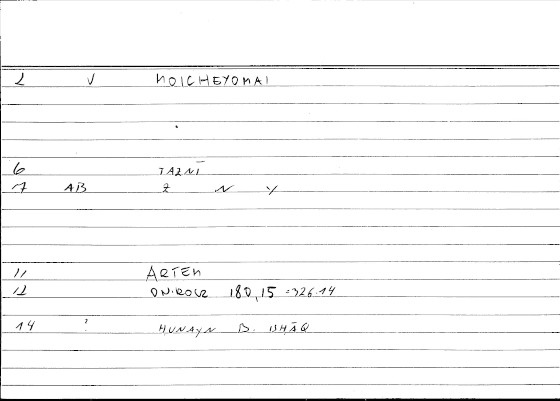 2 V MOICHEYOMAI
6 TAZNĪ
7 AB Z N Y
11 ARTEM
12 ONIROCR 180,15 = 326.14
14 ? HUNAYN B. ISHĀQ